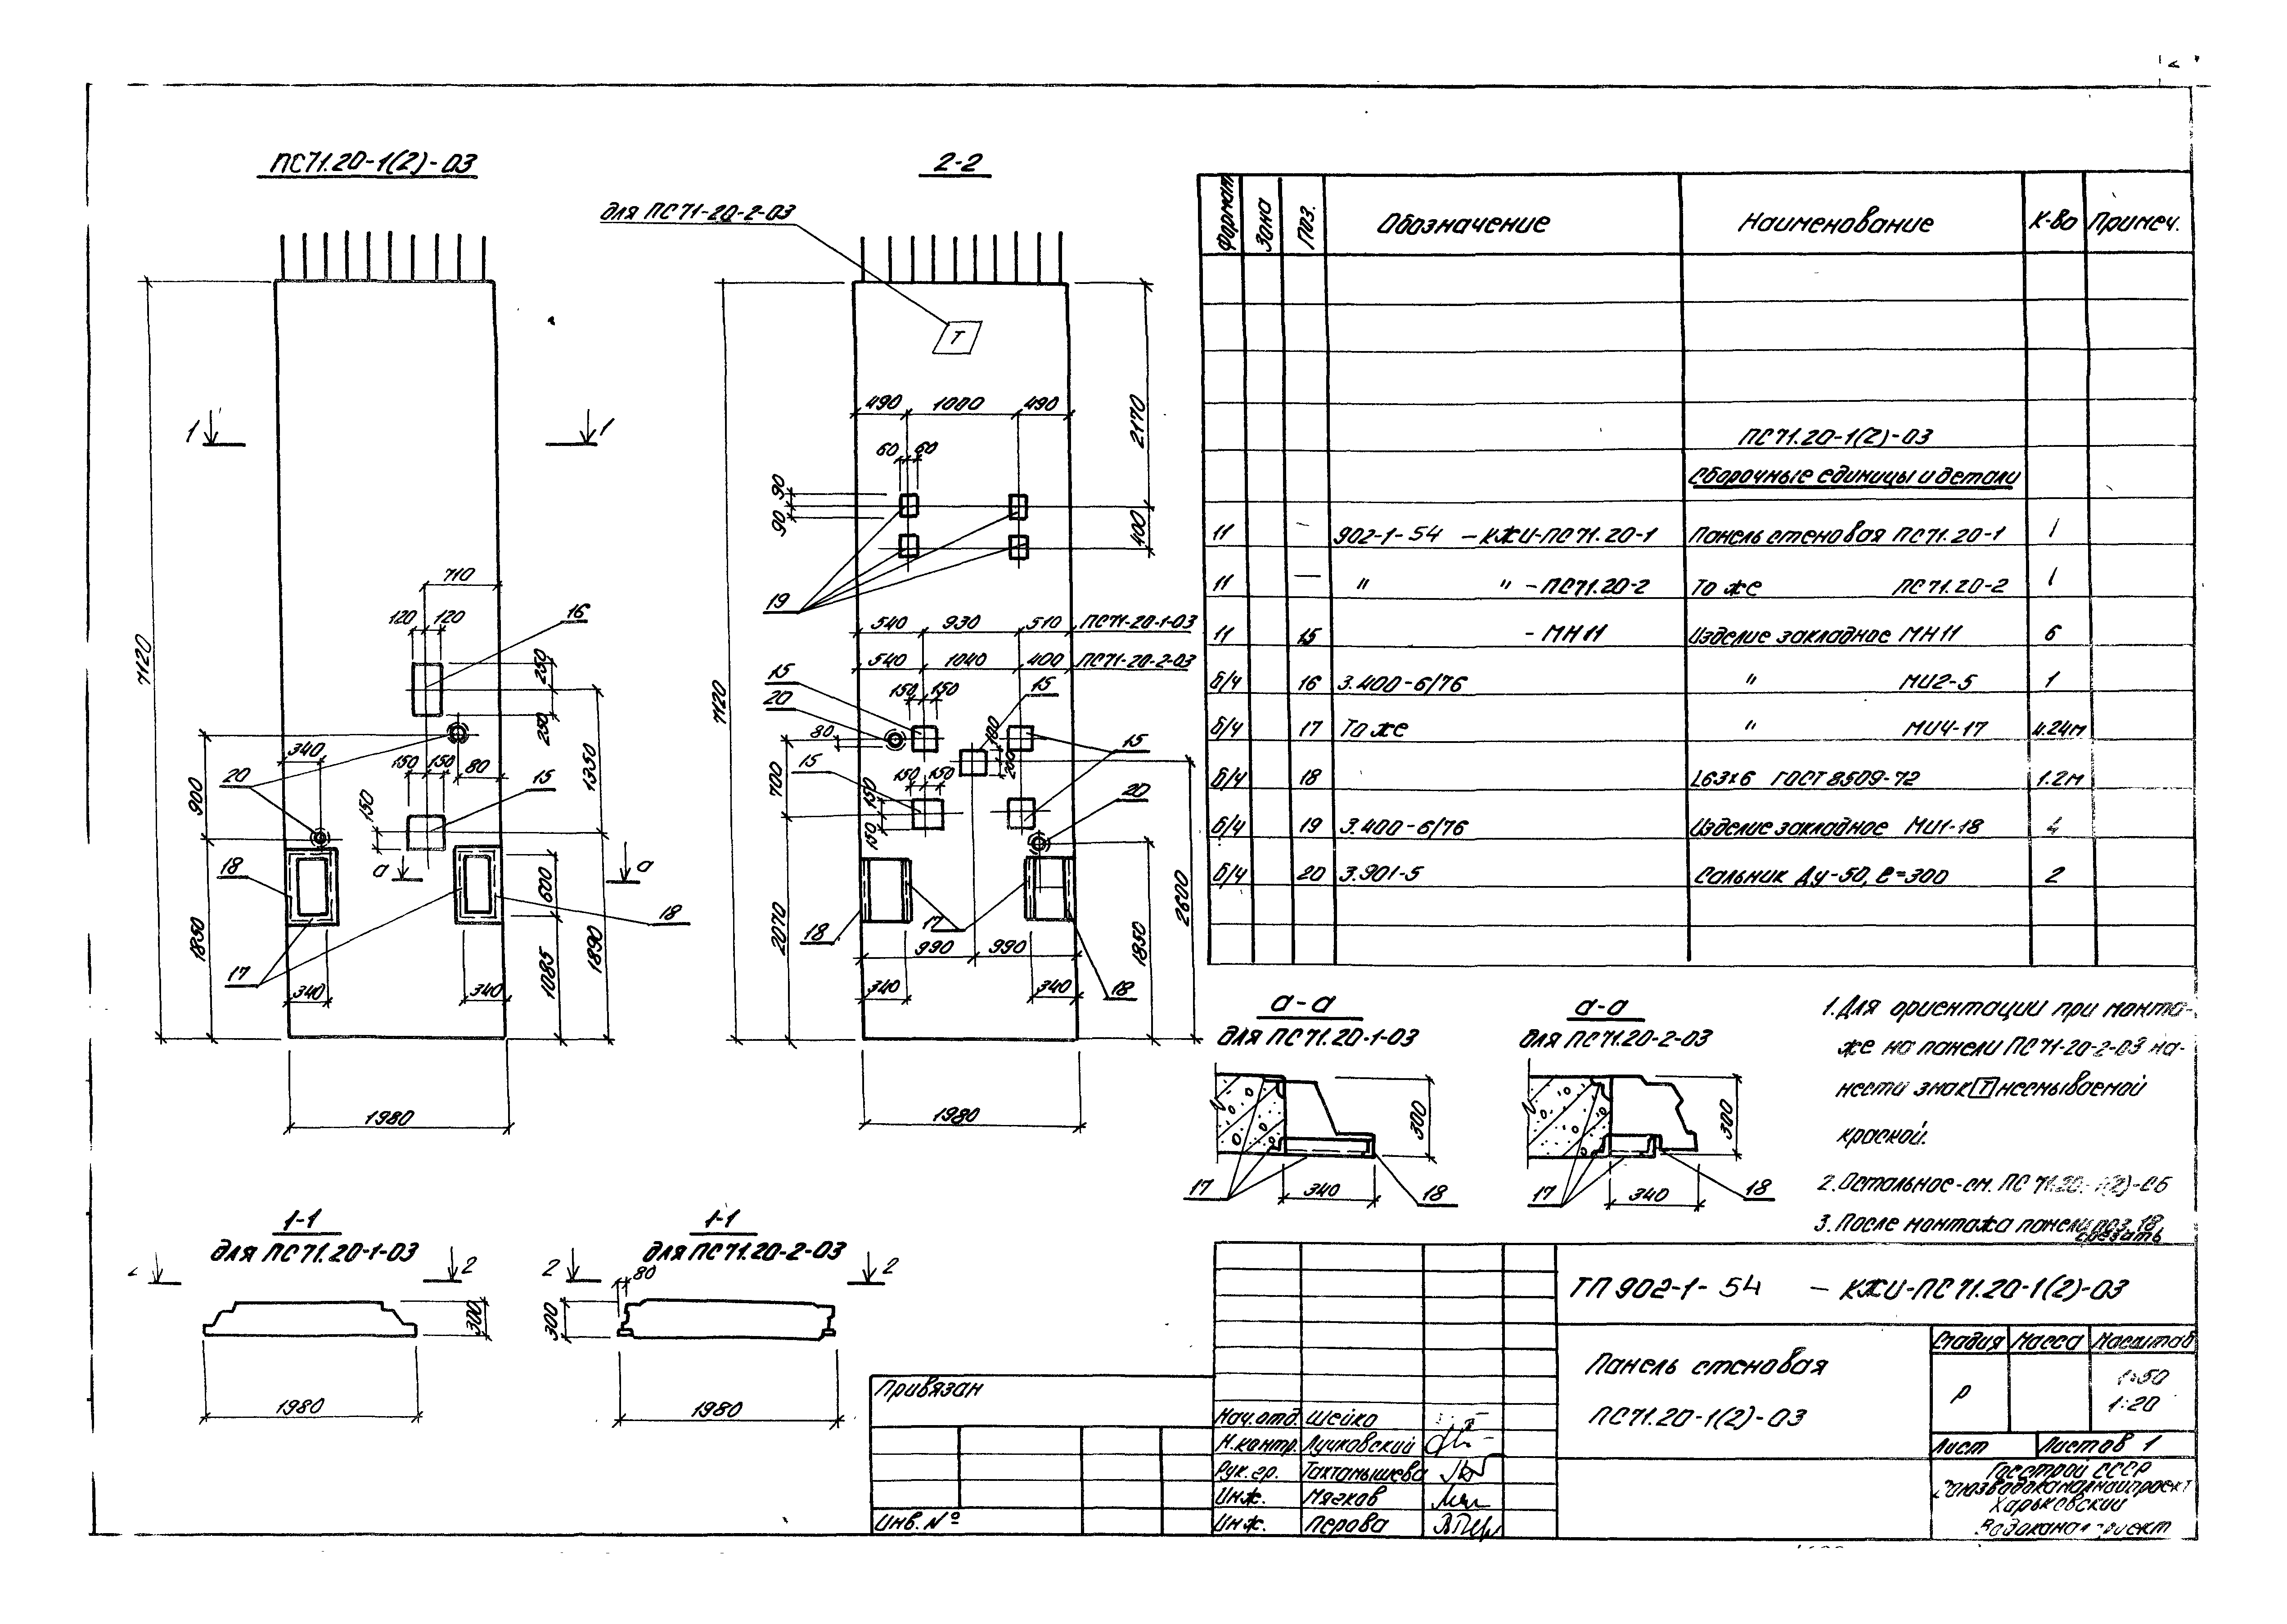 ПС71.20-1(2)-03
2-2
для ПС71-20-2-03
Т
1 1
7120
710
120 120
16
250
250
340
20
900
150 150
80
15
150
1350
а а
18
600
18
17
340 340
1850
1085
1890
1980
490 1000 490
2170
60 60
90
90
400
19
540 930 510 ПС71-20-1-03
540 1040 400 ПС71-20-2-03
15
150 150
15
20
80
100
200
15
15
150 150
700
150
150
20
7120
18
17
990 990
2070
340 340
18
1850
2600
1980
Формат Зона Поз. Обозначение Наименование К-во Примеч.
ПС71.20-1(2)-03
Сборочные единицы и детали
11 — 902-1-54 - КЖИ-ПС71.20-1 Панель стеновая ПС71.20-1 1
11 — " " - ПС71.20-2 То же ПС71.20-2 1
11 15 - МН11 Изделие закладное МН11 6
б/ч 16 3.400-6/76 " МИ2-5 1
б/ч 17 То же " МИ4-17 4.24м
б/ч 18 L63×6 ГОСТ 8509-72 1.2м
б/ч 19 3.400-6/76 Изделие закладное МИ1-18 4
б/ч 20 3.901-5 Сальник Ду-50, ℓ=300 2
а-а
для ПС71.20-1-03
300
17
340
18
а-а
для ПС71.20-2-03
300
17
340
18
1. Для ориентации при монта-
же на панели ПС71-20-2-03 на-
нести знак Т несмываемой
краской.
2. Остальное-см. ПС 71.20-1(2)-СБ
3. После монтажа панели поз. 18
срезать
1-1
для ПС71.20-1-03
2
300
1980
1-1
для ПС71.20-2-03
2 2
80
300
1980
ТП 902-1-54 - КЖИ-ПС71.20-1(2)-03
Панель стеновая
ПС71.20-1(2)-03
Стадия Масса Масштаб
Р
1:50
1:20
Лист Листов 1
Госстрой СССР
Союзводоканалниипроект
Харьковский
Водоканалпроект
Привязан
Инв. №
Нач.отд. Шейко
Н.контр. Лучковский
Рук. гр. Тактамышева
Инж. Мягков
Инж. Перова